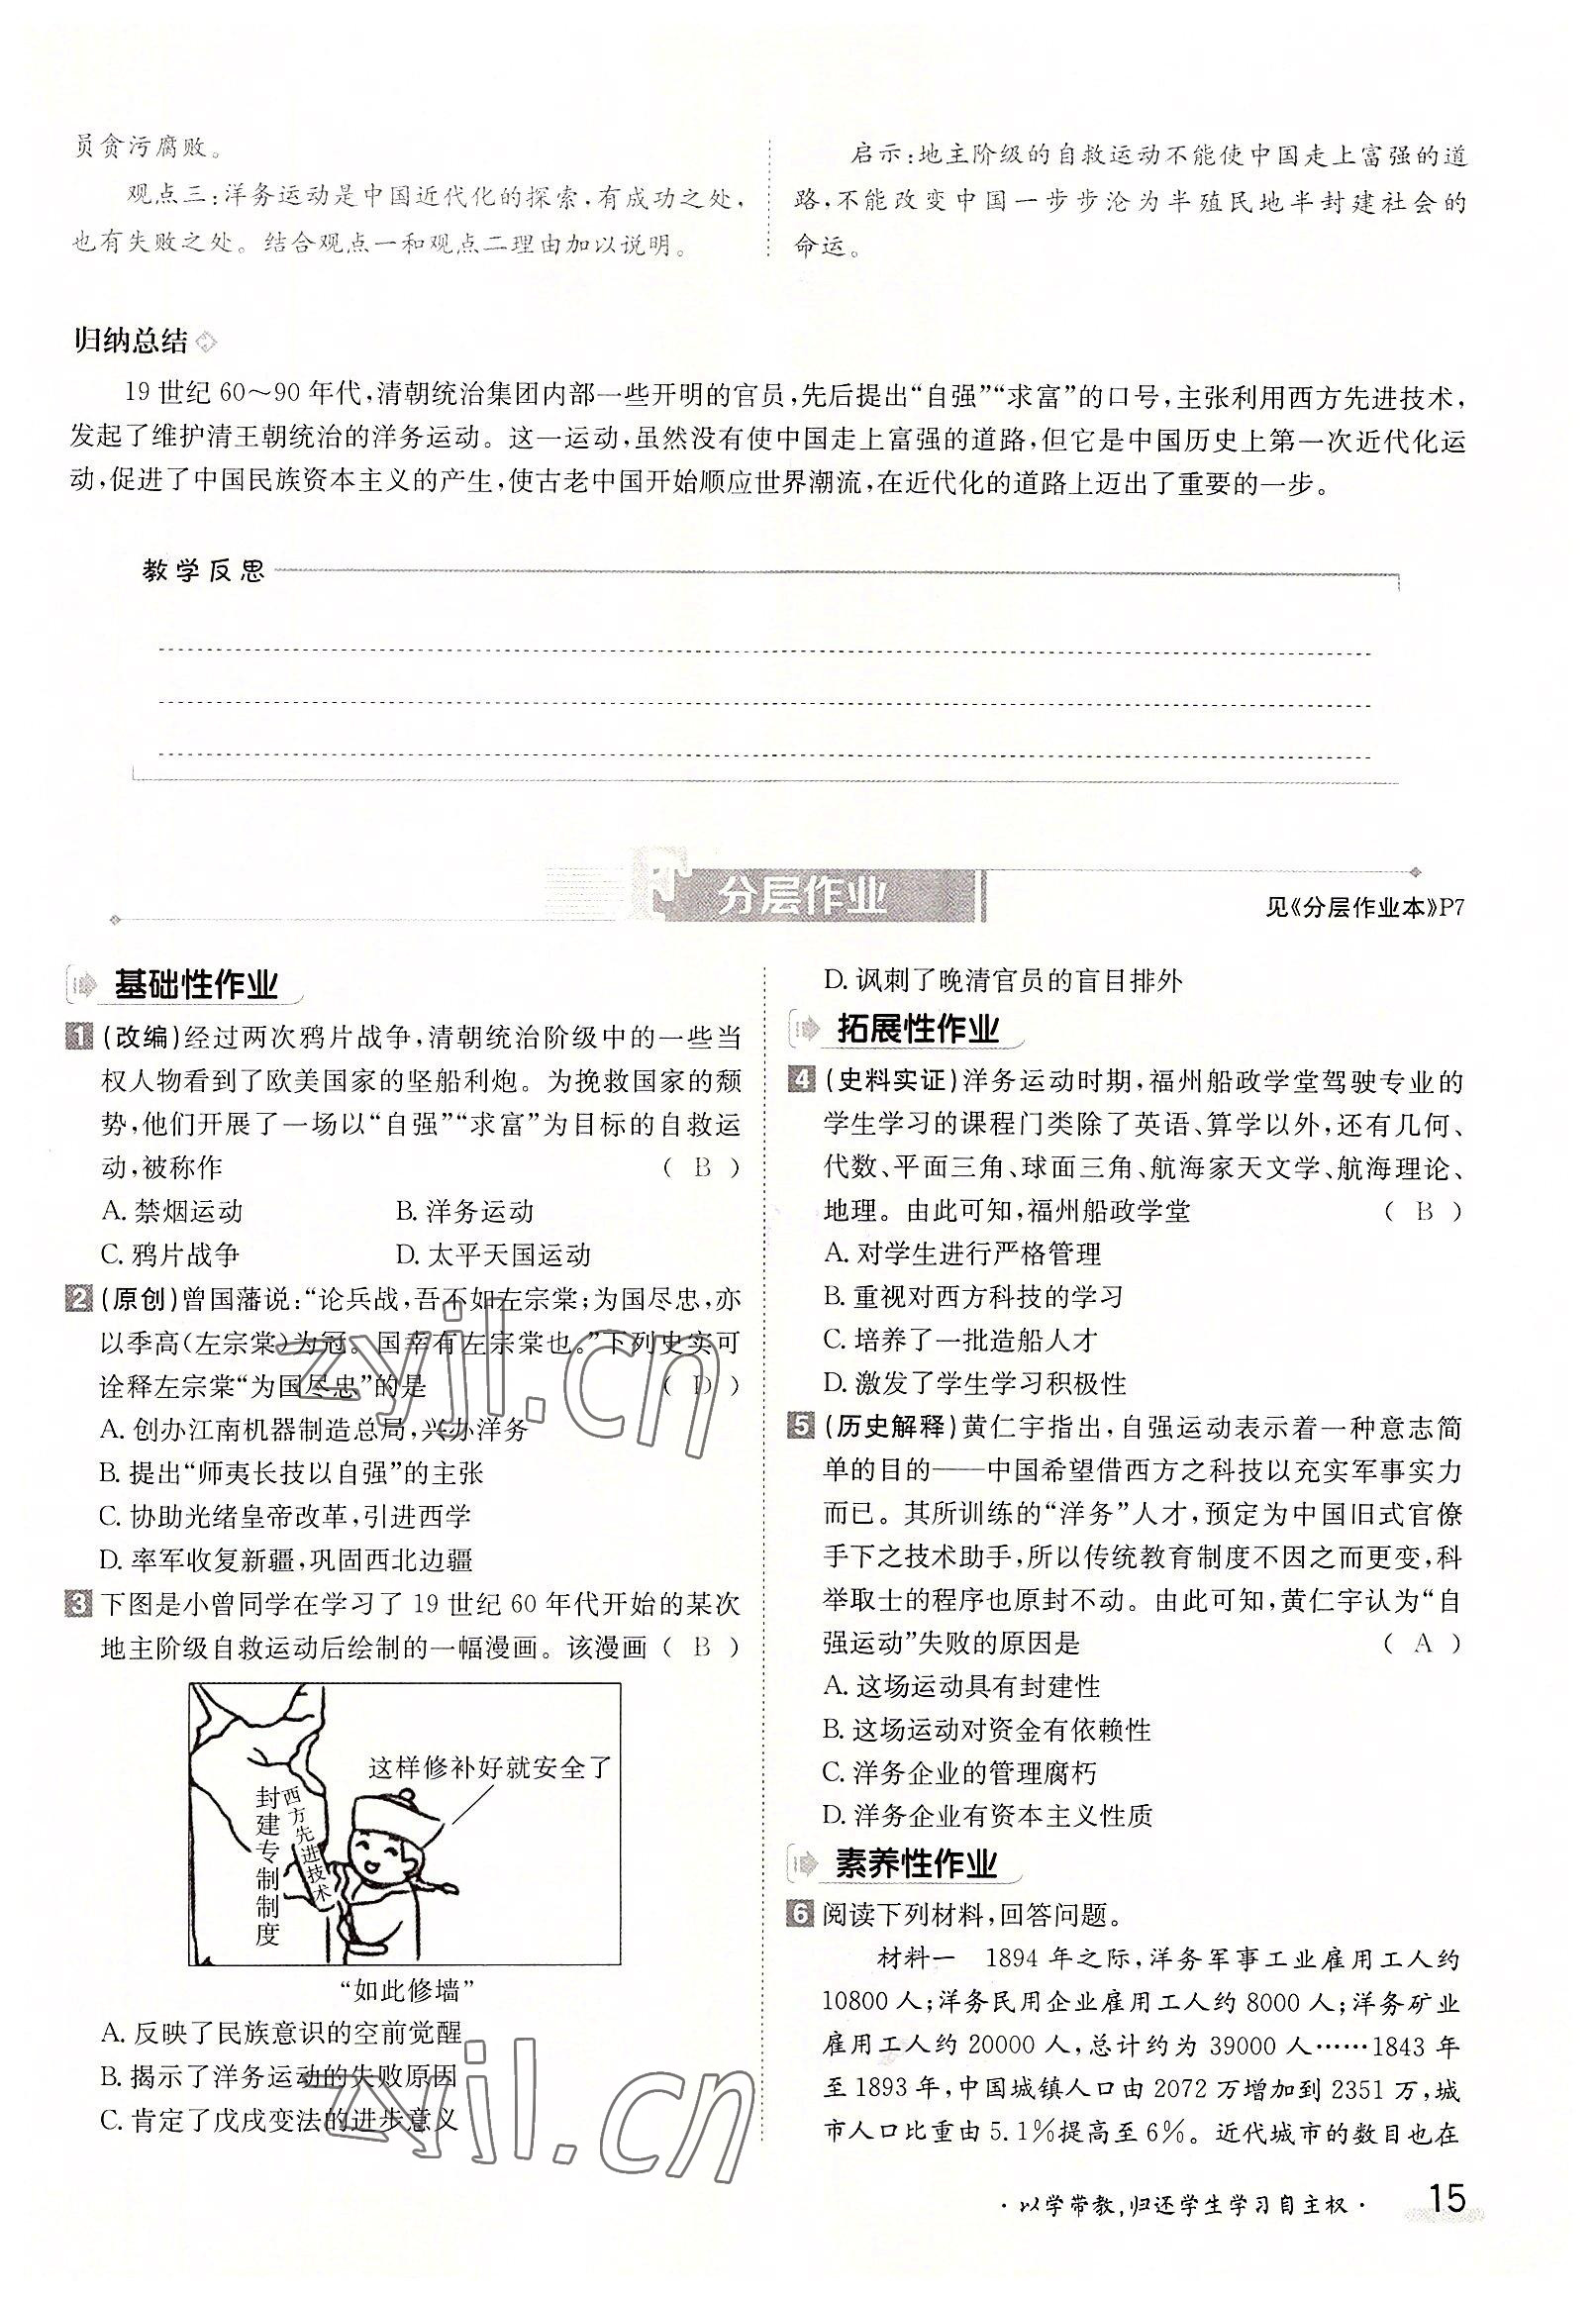 员贪污腐败。
观点三:洋务运动是中国近代化的探索,有成功之处,
也有失败之处。结合观点一和观点二理由加以说明。
启示:地主阶级的自救运动不能使中国走上富强的道
路,不能改变中国一步步沦为半殖民地半封建社会的
命运。
归纳总结
19世纪60～90年代,清朝统治集团内部一些开明的官员,先后提出“自强”“求富”的口号,主张利用西方先进技术,
发起了维护清王朝统治的洋务运动。这一运动,虽然没有使中国走上富强的道路,但它是中国历史上第一次近代化运
动,促进了中国民族资本主义的产生,使古老中国开始顺应世界潮流,在近代化的道路上迈出了重要的一步。
教学反思
分层作业
见《分层作业本》P7
基础性作业
1 (改编)经过两次鸦片战争,清朝统治阶级中的一些当
权人物看到了欧美国家的坚船利炮。为挽救国家的颓
势,他们开展了一场以“自强”“求富”为目标的自救运
动,被称作 ( B )
A. 禁烟运动 B. 洋务运动
C. 鸦片战争 D. 太平天国运动
2 (原创)曾国藩说:“论兵战,吾不如左宗棠;为国尽忠,亦
以季高(左宗棠)为冠。国幸有左宗棠也。”下列史实可
诠释左宗棠“为国尽忠”的是 ( D )
A. 创办江南机器制造总局,兴办洋务
B. 提出“师夷长技以自强”的主张
C. 协助光绪皇帝改革,引进西学
D. 率军收复新疆,巩固西北边疆
3 下图是小曾同学在学习了19世纪60年代开始的某次
地主阶级自救运动后绘制的一幅漫画。该漫画 ( B )
这样修补好就安全了
封建专制制度
西方先进技术
“如此修墙”
A. 反映了民族意识的空前觉醒
B. 揭示了洋务运动的失败原因
C. 肯定了戊戌变法的进步意义
D. 讽刺了晚清官员的盲目排外
拓展性作业
4 (史料实证)洋务运动时期,福州船政学堂驾驶专业的
学生学习的课程门类除了英语、算学以外,还有几何、
代数、平面三角、球面三角、航海家天文学、航海理论、
地理。由此可知,福州船政学堂 ( B )
A. 对学生进行严格管理
B. 重视对西方科技的学习
C. 培养了一批造船人才
D. 激发了学生学习积极性
5 (历史解释)黄仁宇指出,自强运动表示着一种意志简
单的目的——中国希望借西方之科技以充实军事实力
而已。其所训练的“洋务”人才,预定为中国旧式官僚
手下之技术助手,所以传统教育制度不因之而更变,科
举取士的程序也原封不动。由此可知,黄仁宇认为“自
强运动”失败的原因是 ( A )
A. 这场运动具有封建性
B. 这场运动对资金有依赖性
C. 洋务企业的管理腐朽
D. 洋务企业有资本主义性质
素养性作业
6 阅读下列材料,回答问题。
材料一 1894年之际,洋务军事工业雇用工人约
10800人;洋务民用企业雇用工人约8000人;洋务矿业
雇用工人约20000人,总计约为39000人……1843年
至1893年,中国城镇人口由2072万增加到2351万,城
市人口比重由5.1%提高至6%。近代城市的数目也在
zyjl.cn
zyjl.cn
·以学带教,归还学生学习自主权·
15